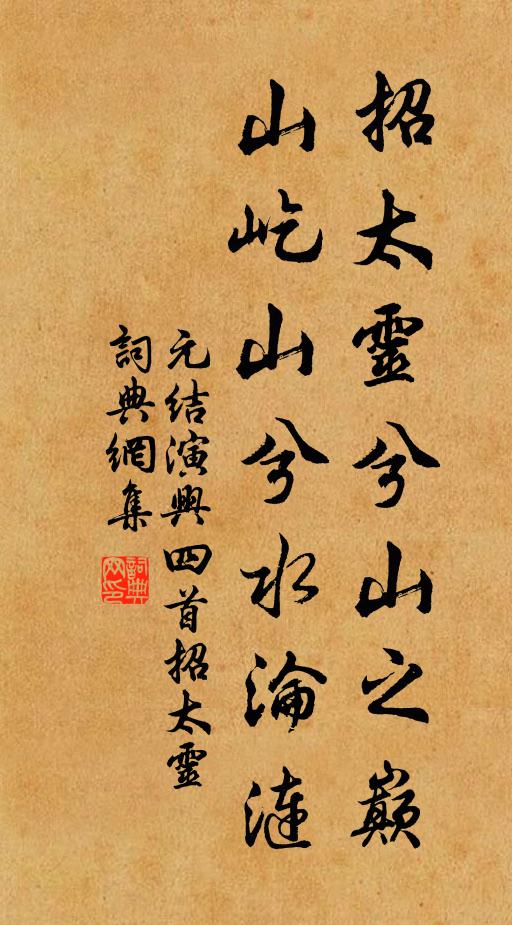 招太靈兮山之巔
山屹山兮水淪漣
元结演興四首招太靈
詞典網集
詞典網印